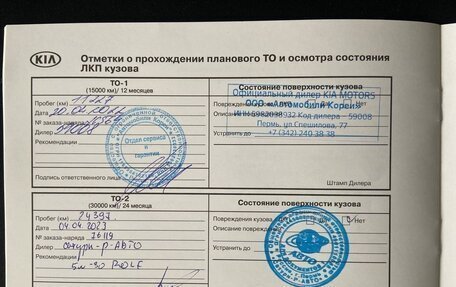 KIA
Отметки о прохождении планового ТО и осмотра состояния
ЛКП кузова
ТО-1
(15000 км)/ 12 месяцев
Пробег (км) 11227
Дата 20.04.2022
№ заказ-наряда
Дилер 59008
Рекомендации
Отдел сервиса
и
гарантии
Подпись ответственного лица
Состояние поверхности кузова
Официальный дилер KIA MOTORS
Повреждения Нет
ООО «Автомобили Кореи»
Описание
ИНН 5982038932 Код дилера - 59008
Устранить до
Пермь, ул Спешилова, 77
+7 (342) 240 38 38
Штамп Дилера
ТО-2
(30000 км)/ 24 месяца
Пробег (км) 24397
Дата 04.04.2023
№ заказ-наряда 76119
Дилер -Р-АВТО
Рекомендации
5W-30 ROLF
Состояние поверхности кузова
Повреждения кузова Нет
Описание
Устранить до
АВТО